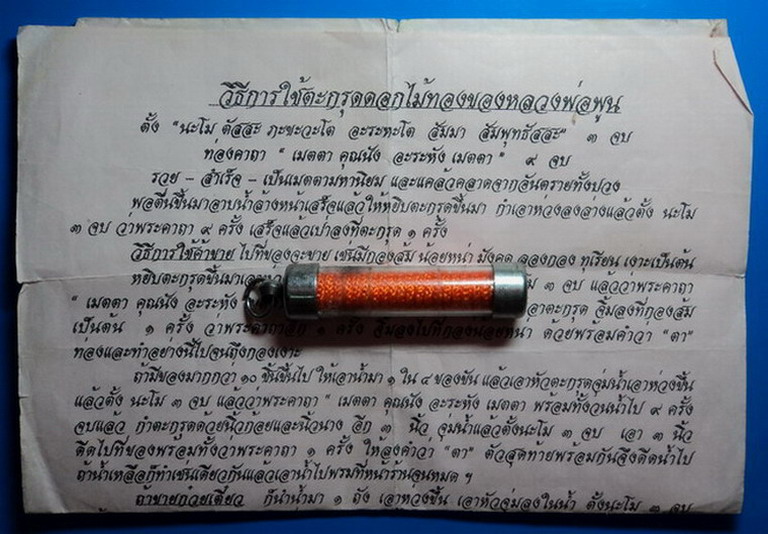 วิธีการใช้ตะกรุดดอกไม้ทองของหลวงพ่อพูน
ตั้ง "นะโม ตัสสะ ภะขะวะโต อะระหะโต สัมมา สัมพุทธัสสะ" ๓ จบ
ท่องคาถา " เมตตา คุณนัง อะระหัง เมตตา " ๙ จบ
รวย - สำเร็จ - เป็นเมตตามหานิยม และแคล้วคลาดจากอันตรายทั้งปวง
พอตื่นขึ้นมาอาบน้ำล้างหน้าเสร็จแล้วให้หยิบตะกรุดขึ้นมา กำเอาห่วงลงล่างแล้วตั้ง นะโม
๓ จบ ว่าพระคาถา ๙ ครั้ง เสร็จแล้วเป่าลงที่ตะกรุด ๑ ครั้ง
วิธีการใช้ค้าขาย ไปที่ของจะขาย เช่นมีกองส้ม น้อยหน่า มังคุด ลองกอง ทุเรียน เงาะเป็นต้น
หยิบตะกรุดขึ้นมาเอาห่ว ๓ จบ แล้วว่าพระคาถา
" เมตตา คุณนัง อะระหัง อาตะกรุด จิ้มลงที่กองส้ม
เป็นต้น ๑ ครั้ง ว่าพระคาถาอีก ๑ ครั้ง จิ้มลงไปที่กองน้อยหน่า ด้วยพร้อมคำว่า "ตา"
ท่องและทำอย่างนี้ไปจนถึงกองเงาะ
ถ้ามีของมากกว่า ๑๐ ชั้นขึ้นไป ให้เอาน้ำมา ๑ ใน ๔ ของขัน แล้วเอาหัวตะกรุดจุ่มน้ำเอาห่วงขึ้น
แล้วตั้ง นะโม ๓ จบ แล้วว่าพระคาถา " เมตตา คุณนัง อะระหัง เมตตา พร้อมทั้งวนน้ำไป ๙ ครั้ง
จบแล้ว กำตะกรุดด้วยนิ้วก้อยและนิ้วนาง อีก ๓ นิ้ว จุมน้ำแล้วตั้งนะโม ๓ จบ เอา ๓ นิ้ว
ดีดไปที่ของพร้อมทั้งว่าพระคาถา ๑ ครั้ง ให้ลงคำว่า "ตา" ตัวสุดท้ายพร้อมกันจึงดีดน้ำไป
ถ้าน้ำเหลือก็ทำเช่นเดียวกันแล้วเอาน้ำไปพรมที่หน้าร้านจนหมด ฯ
ถ้าขายก๋วยเตี๋ยว ก็นำน้ำมา ๑ ถัง เอาห่วงขึ้น เอาหัวจุ่มลงในน้ำ ตั้งนะโม ๓ จบ